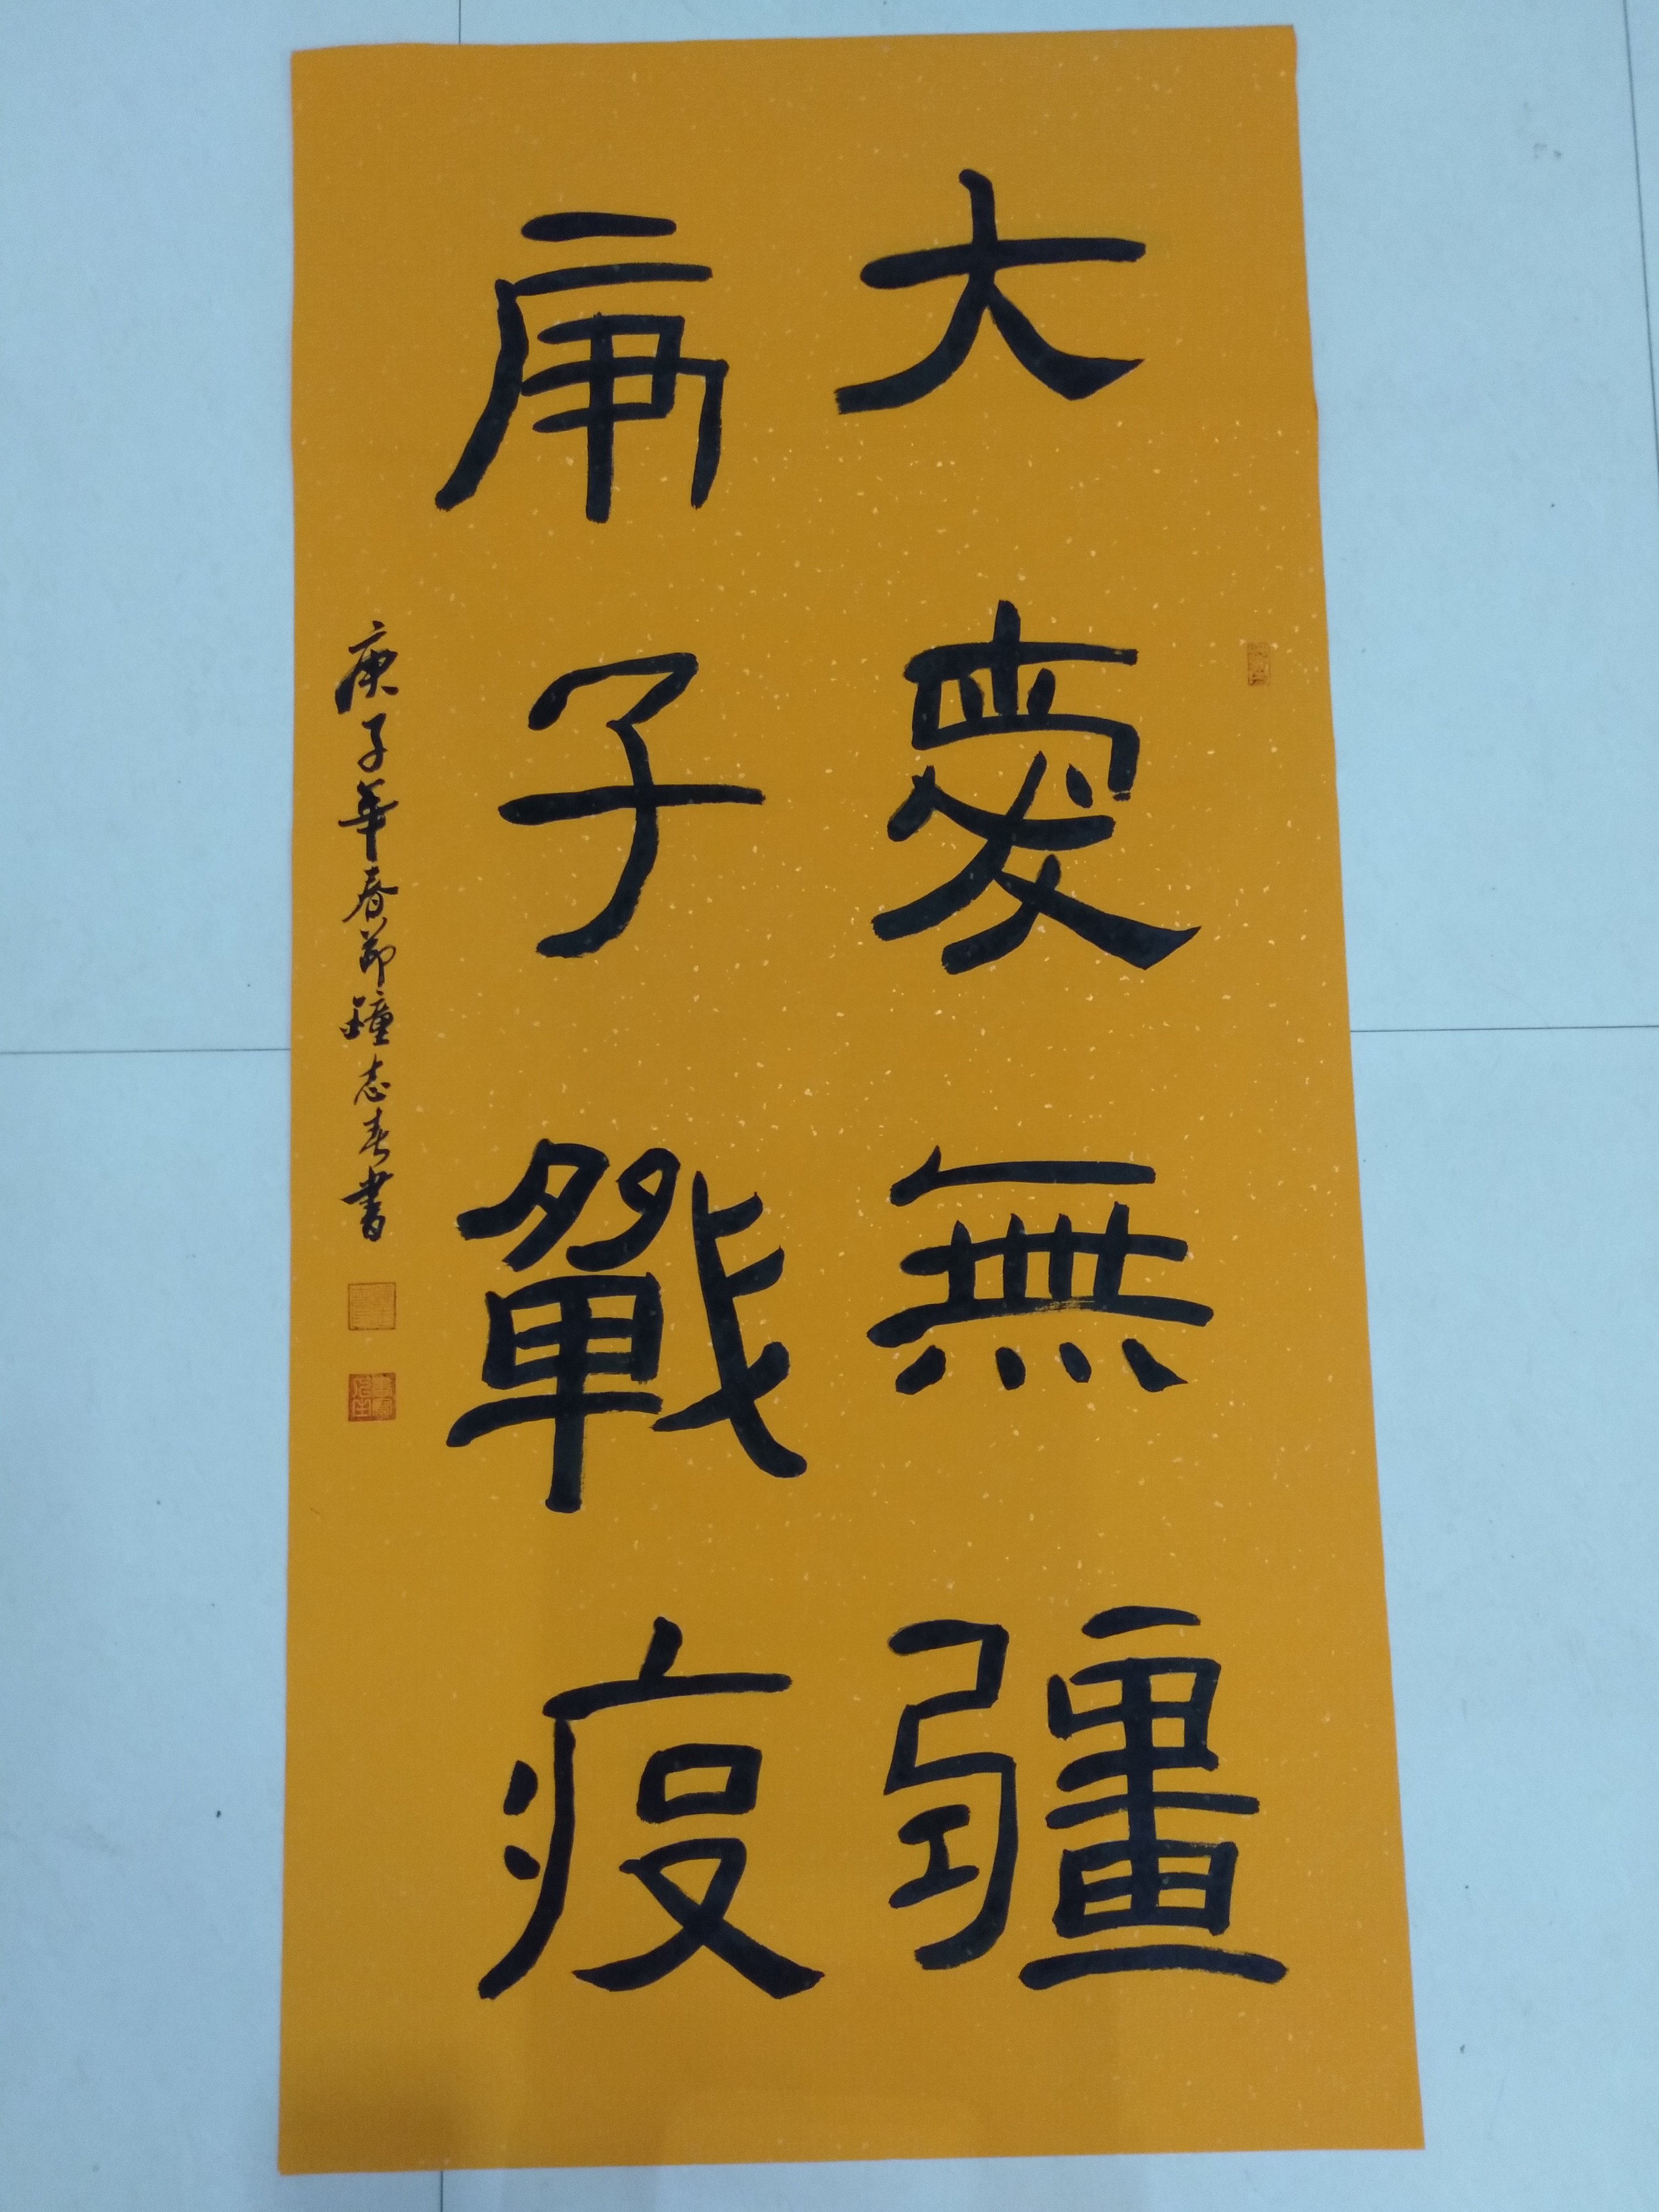 大愛無疆
庚子戰疫
庚子年春節鐘志春書